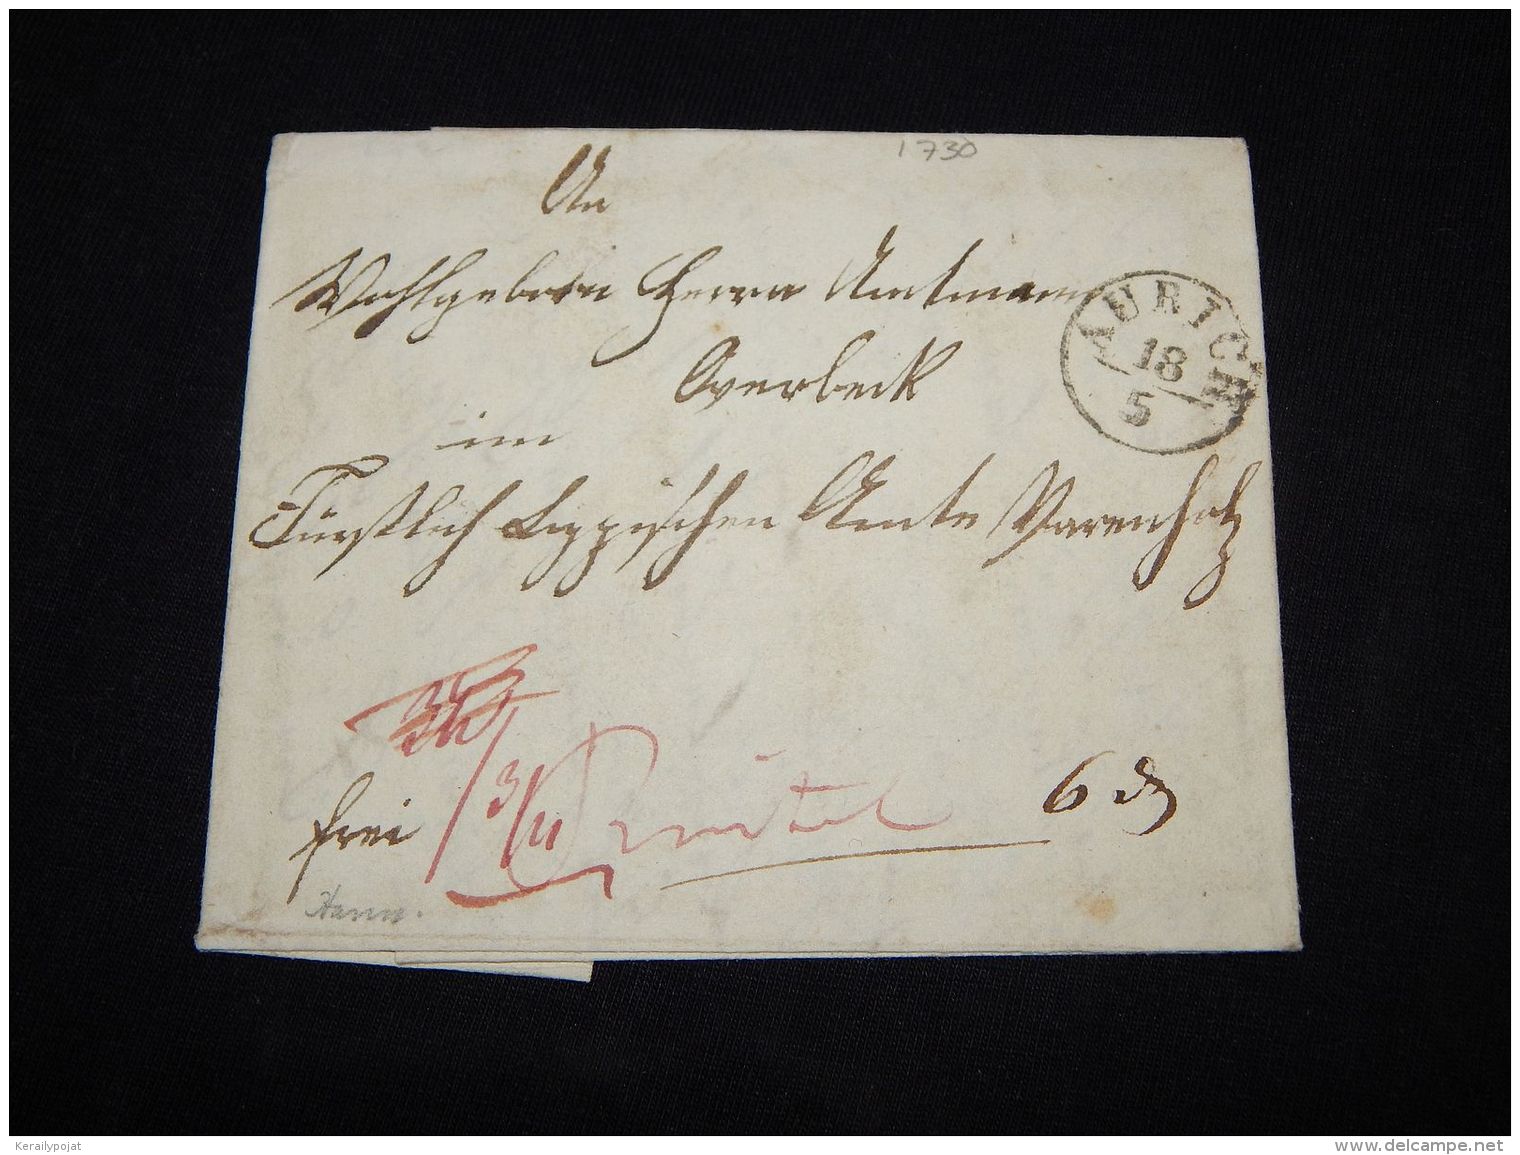 1730
An
Wohlgeboren Herrn Amtmann
Overbeck
im
Fürstlich Lippischen Amte Varenholz
AURICH
18
5
3/11
frei
6
Hann.
Kerailypojat
www.delcampe.net